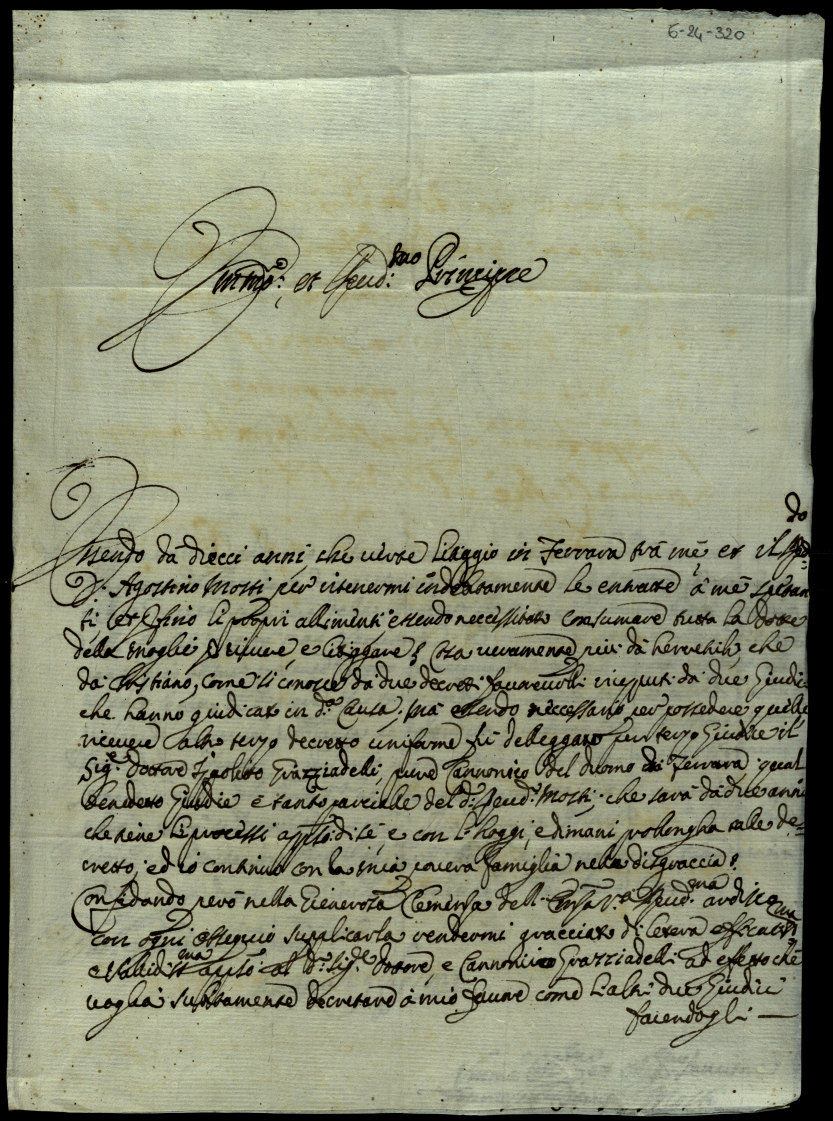 6-24-320
Emin.mo: et Reud.mo: Principe
Essendo da diecci anni, che uerte Litiggio in Ferrara trà me et il Reud.do
D. Agostino Mosti per ritenermi indebitamente le entratte à me spetan
ti et sino li propri allimenti essendo neccessitato consumare tutta la dotte
della moglie p. uiuere, e litiggare; Cosa ueramente più da herretichi, che
da Cristiano, come si conosce da due decretti faureuolli riceputi da due Giudici
che hanno giudicato in d.a Causa; mà essendo neccessario per possedere quelle
riceuere altro terzo decretto uniforme fù delleggato per terzo Giudice il
Sig.r dottore Ippolito Grazziadelli, pure Cannonico del duomo di Ferrara qual
benedetto Giudice è tanto parciale del d.o Reud. Mosti, che sarà da due anni
che tiene li processi appresso di se, e con l'hoggi, e dimani prolongha tale de=
cretto, ed io continuo con la mia pouera famiglia nella disgraccia.
Confidando però nella Beneuola Clemensa dell' Reud.ma ardisco
con ogni ossequio supplicarla rendermi gracciato di letera efficaciss.ma
e Vallidis.ma appresso al d.o Sig.r dottore, e Cannonico Grazziadelli ad effetto che
uoglia subitamente decretare à mio fauore come li altri due Giudici
facendogli —